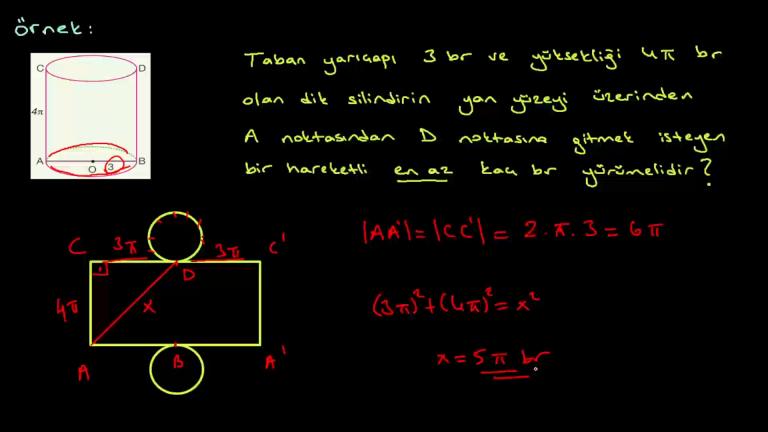 örnek:
Taban yarıçapı 3 br ve yüksekliği 4π br
olan dik silindirin yan yüzeyi üzerinden
A noktasından D noktasına gitmek isteyen
bir hareketli en az kaç br yürümelidir?
C D
4π
A O 3 B
C 3π 3π C'
D
4π X
A B A'
|AA'| = |CC'| = 2 . π . 3 = 6π
(3π)² + (4π)² = x²
x = 5π br